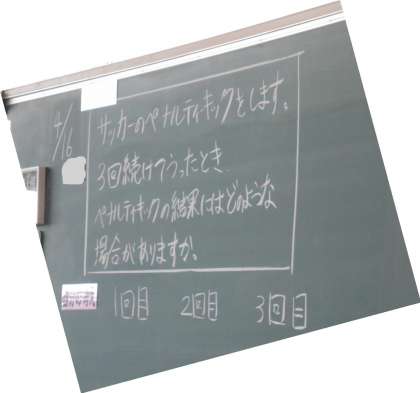 サッカーのペナルティキックをします。
3回続けてうったとき、
ペナルティキックの結果にはどのような
場合がありますか。
1回目 2回目 3回目